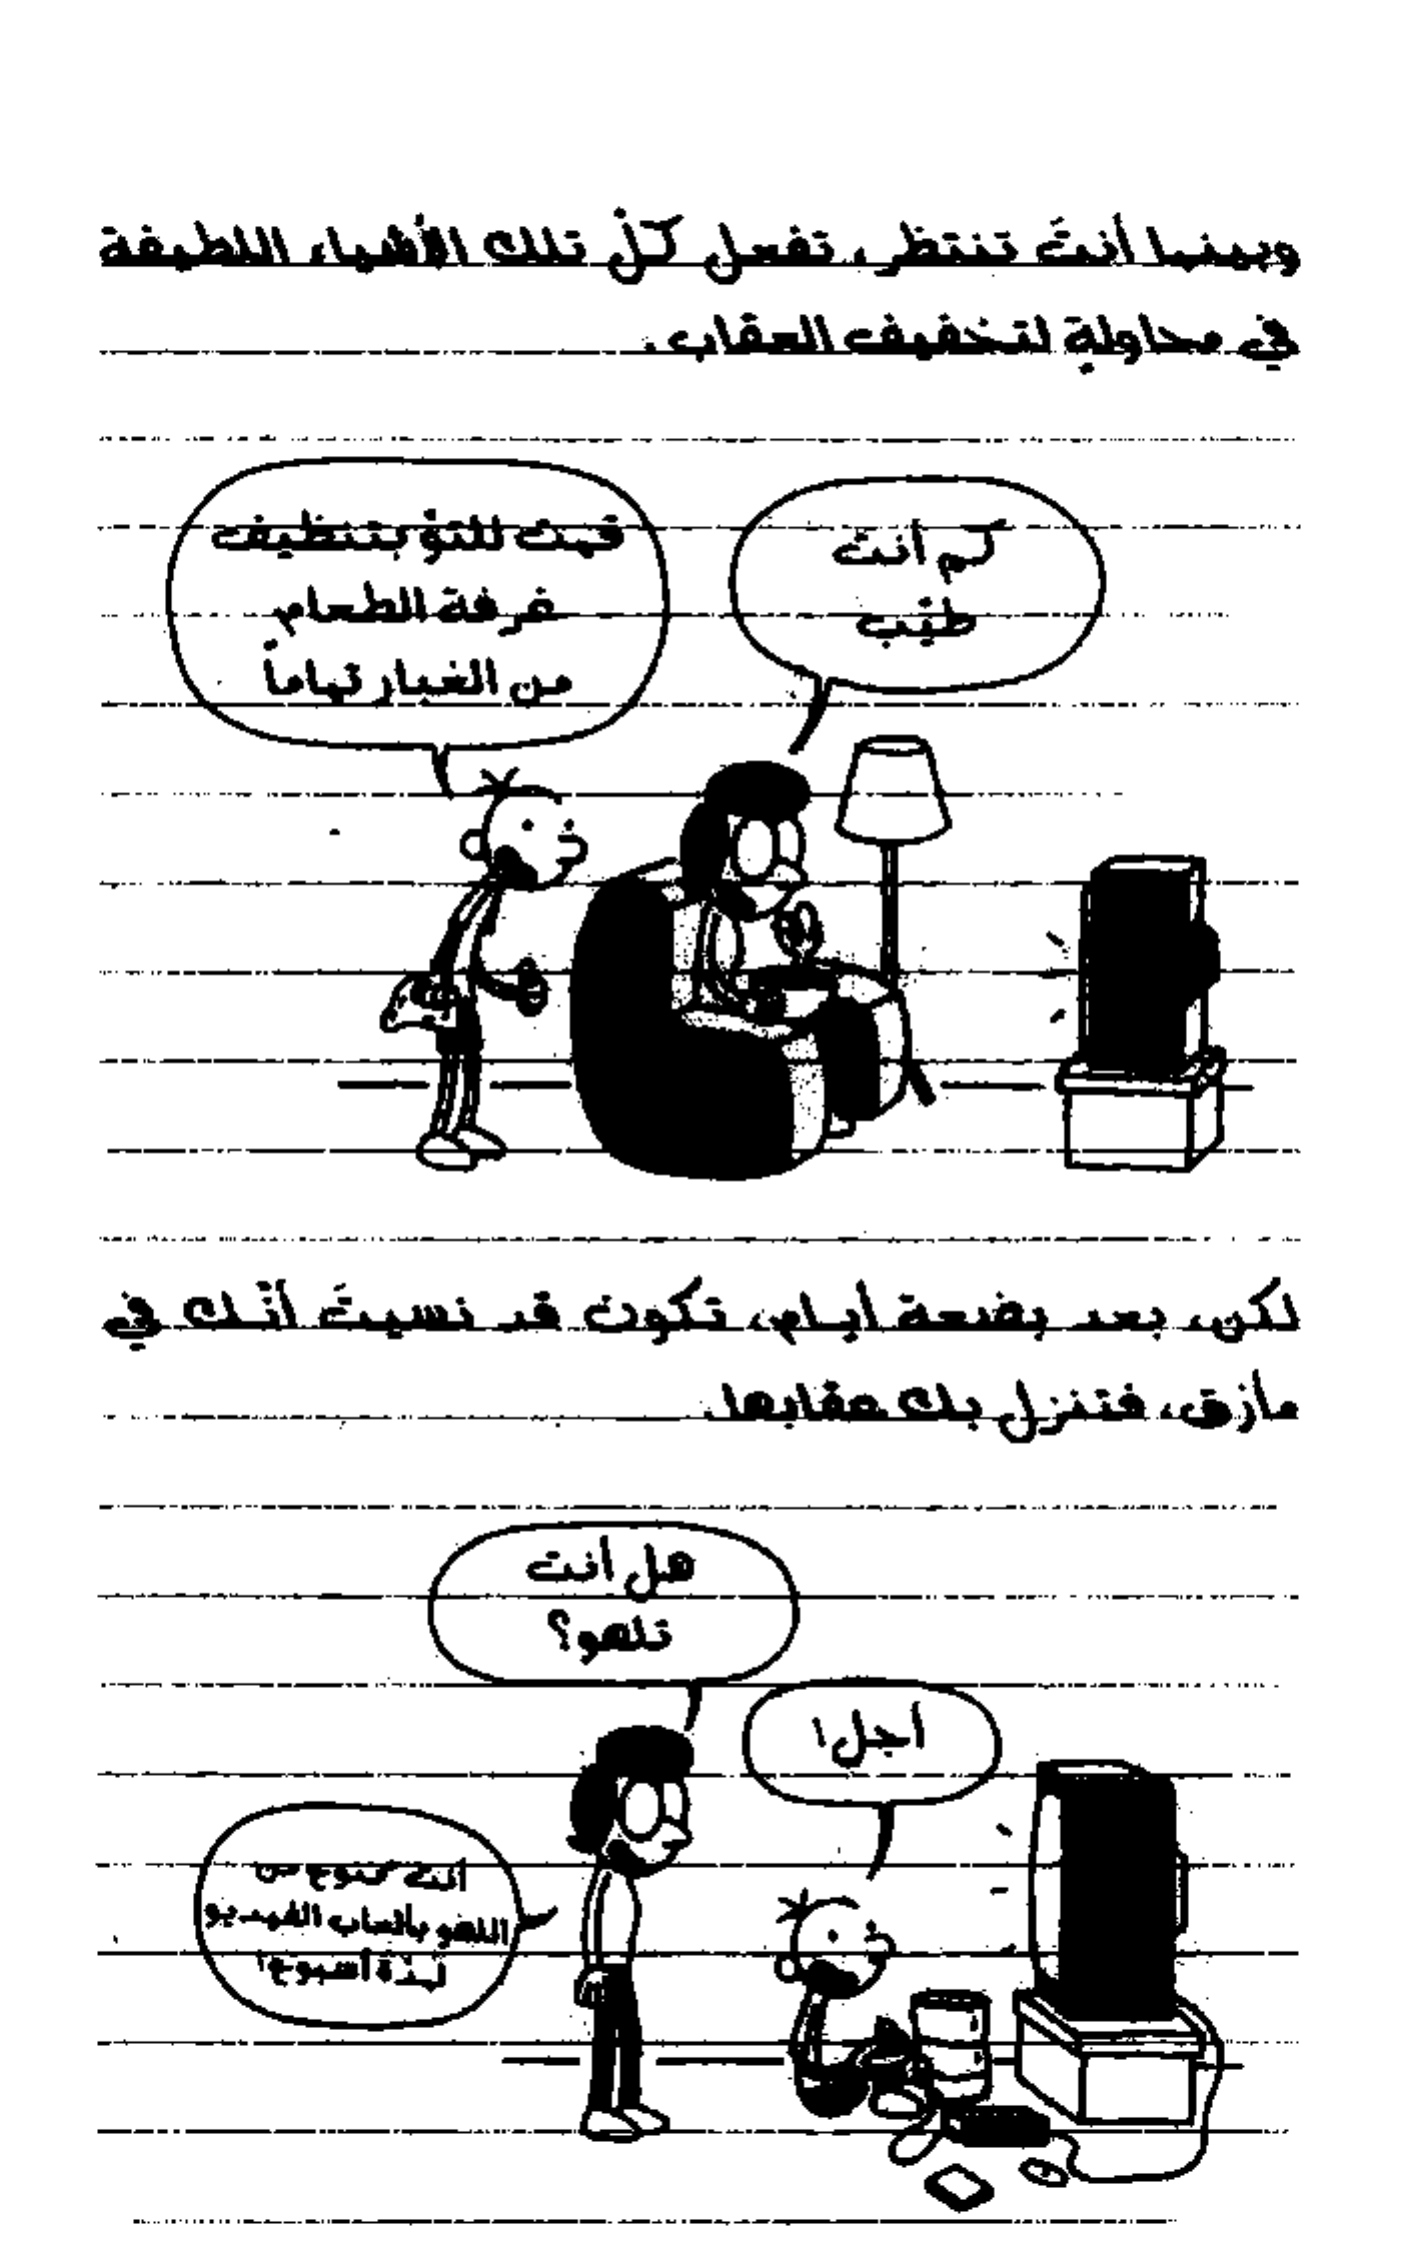 وبينما أنتَ تنتظر، تفعل كلّ تلك الأشياء اللطيفة
في محاولةٍ لتخفيف العقاب.
كم أنت
طيّب
قمت للتوّ بتنظيف
غرفة الطعام
من الغبار تماماً
لكن، بعد بضعة أيام، تكون قد نسيتَ أنّك في
مأزق، فتنزل بك عقابها.
هل أنت
تلهو؟
أجل!
أنت ممنوع من
اللهو بألعاب الفيديو
لمدّة أسبوع!